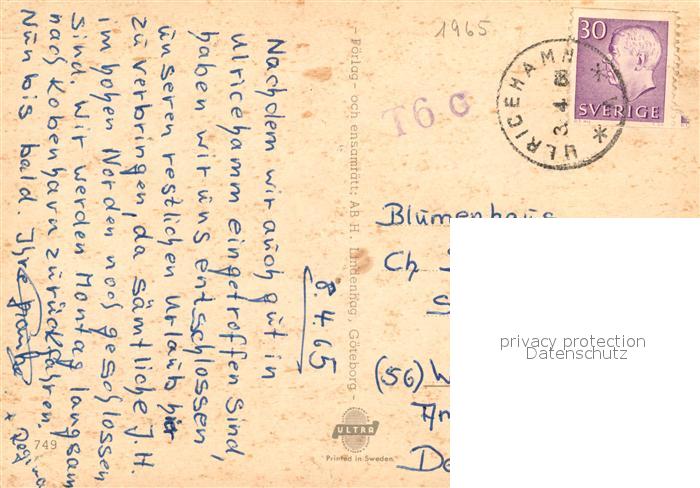 1965
30
SVERIGE
ULRICEHAMN
T6c
8.4.65
Nachdem wir auch gut in
Ulricehamm eingetroffen sind,
haben wir uns entschlossen
unseren restlichen Urlaub hier
zu verbringen, da sämtliche J.H.
im hohen Norden noch geschlossen
sind. Wir werden Montag langsam
nach Kobenhavn zurückfahren.
Nun bis bald. Ihre
+ Regina
- Förlag - och ensamrätt: AB H. Lindenhag, Göteborg -
Blumenhaus
Ch
(56) W
An
De
749
ULTRA
Printed in Sweden
privacy protection
Datenschutz